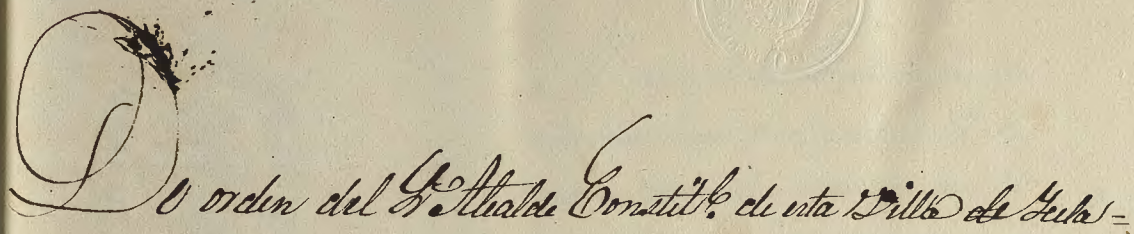 De orden del Sr. Alcalde Constitl. de esta Villa de Yecla=